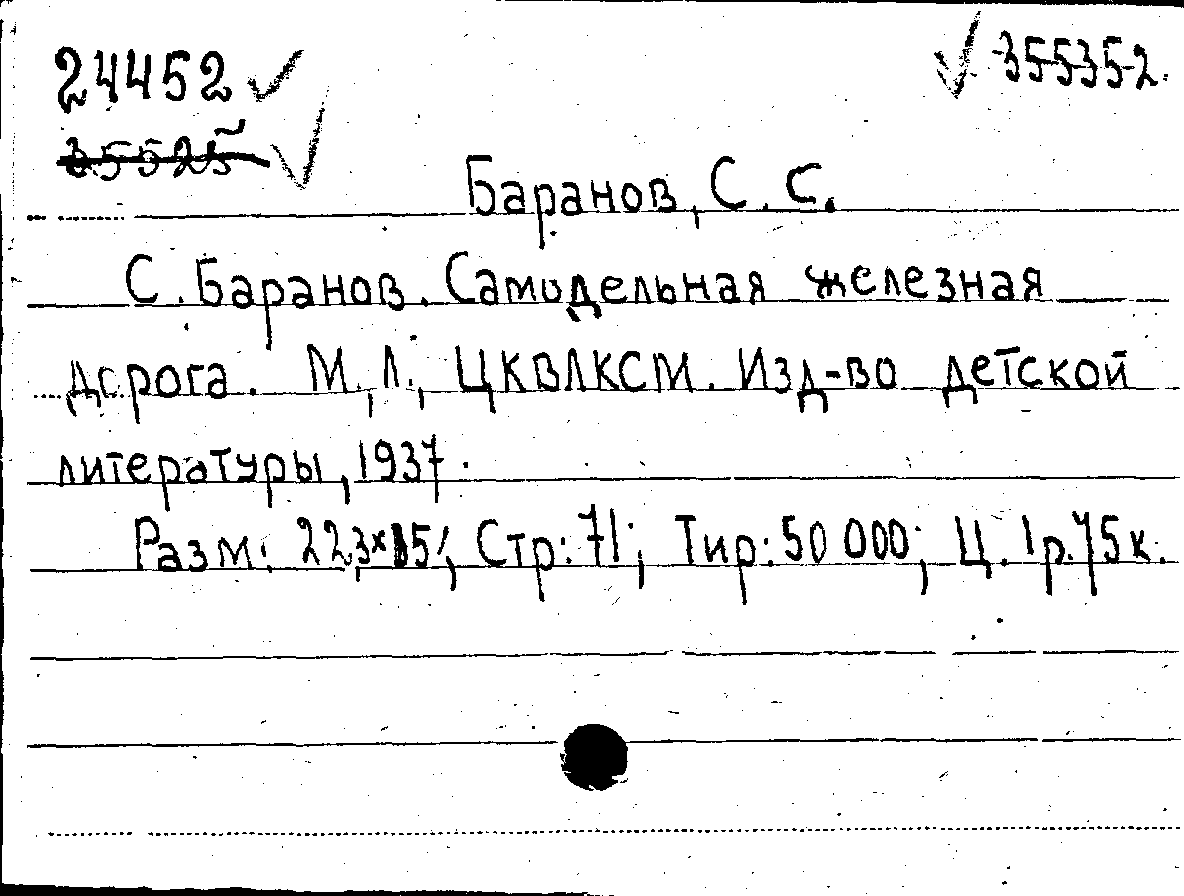 24452 ✓ ✓ 355352.
35525 ✓
Баранов, С. С.
С. Баранов. Самодельная железная
дорога. М., Л., ЦКВЛКСМ. Изд-во детской
литературы, 1937.
Разм: 22,3×15; Стр: 71; Тир: 50 000; Ц. 1р.75к.